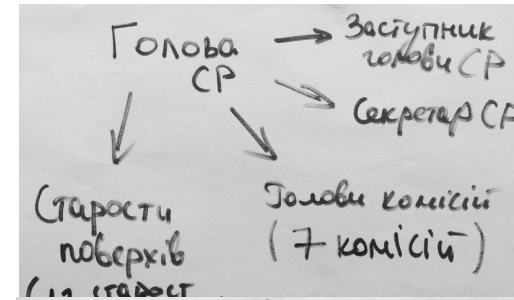 Голова
СР
Заступник
голови СР
Секретар СР
Старости
поверхів
Голови комісій
(7 комісій)
старост